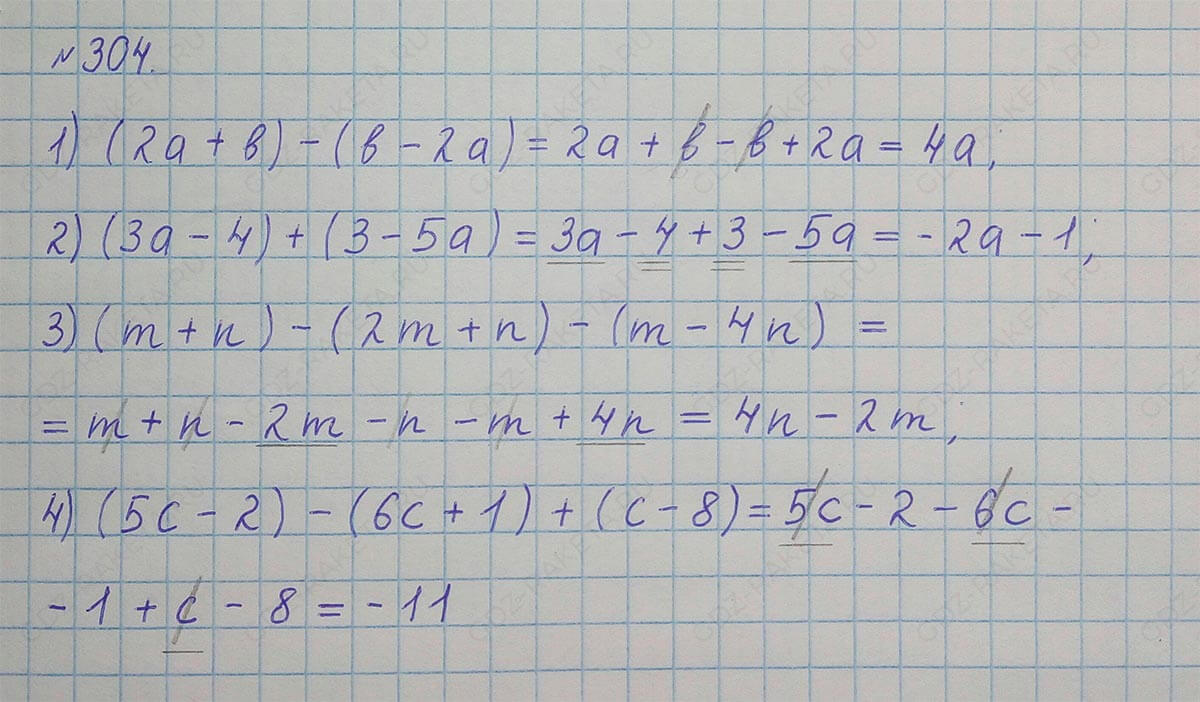 №304.
1) (2a + в) - (в - 2a) = 2a + в - в + 2a = 4a;
2) (3a - 4) + (3 - 5a) = 3a - 4 + 3 - 5a = - 2a - 1;
3) (m + n) - (2m + n) - (m - 4n) =
= m + n - 2m - n - m + 4n = 4n - 2m;
4) (5c - 2) - (6c + 1) + (c - 8) = 5c - 2 - 6c -
- 1 + c - 8 = - 11